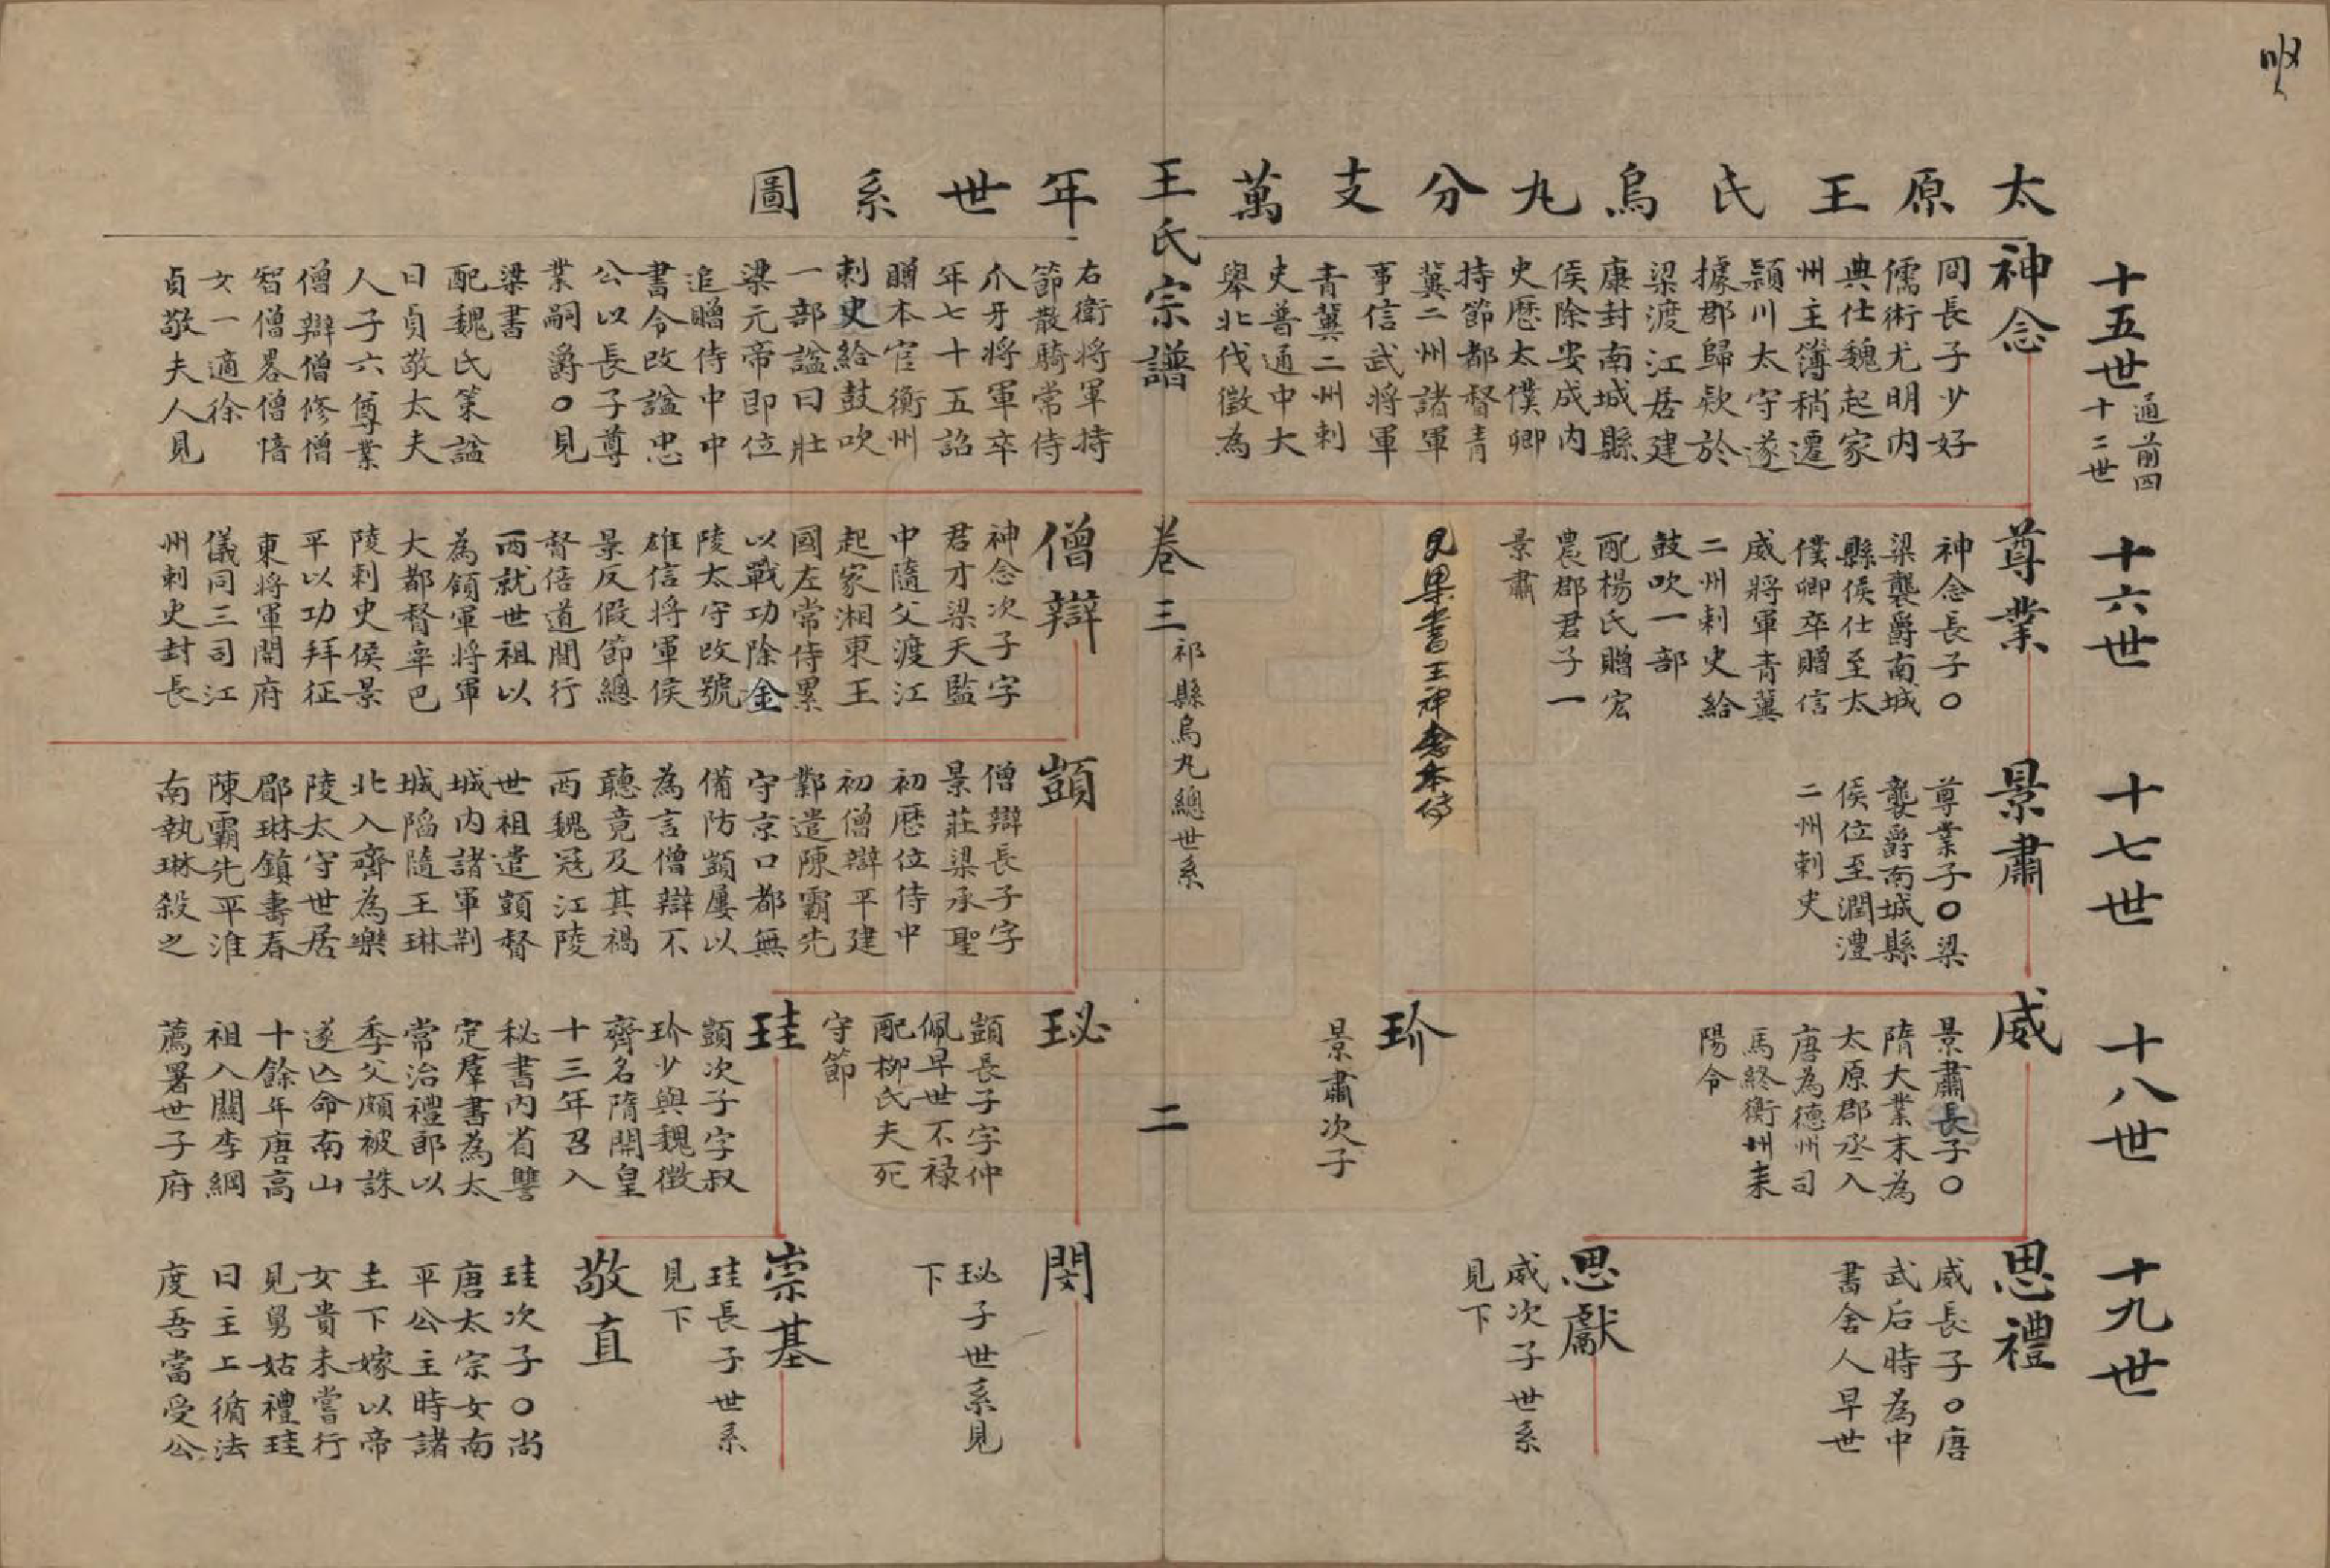 太原王氏烏丸分支萬年世系圖
王氏宗譜
卷三
祁縣烏丸總世系
二
十五世
通前四
十二世
神念
冏長子少好
儒術尤明内
典仕魏起家
州主簿稍遷
潁川太守遂
據郡歸欵於
梁渡江居建
康封南城縣
侯除安成内
史歷太僕卿
持節都督青
冀二州諸軍
事信武將軍
青冀二州刺
史普通中大
舉北伐徵為
右衛將軍持
節散騎常侍
爪牙將軍卒
年七十五詔
贈本官衡州
刺史給鼓吹
一部諡曰壯
梁元帝即位
追贈侍中中
書令改諡忠
公以長子尊
業嗣爵○見
梁書
配魏氏策諡
曰貞敬太夫
人子六尊業
僧辯僧修僧
智僧畧僧愔
女一適徐
貞敬夫人見
十六世
尊業
神念長子○
梁襲爵南城
縣侯仕至太
僕卿卒贈信
威將軍青冀
二州刺史給
鼓吹一部
配楊氏贈宏
農郡君子一
景肅
見梁書王神念本傳
僧辯
神念次子字
君才梁天監
中隨父渡江
起家湘東王
國左常侍累
以戰功除金
陵太守改號
雄信將軍侯
景反假節總
督倍道間行
西就世祖以
為領軍將軍
大都督率巴
陵刺史侯景
平以功拜征
東將軍開府
儀同三司江
州刺史封長
十七世
景肅
尊業子○梁
襲爵南城縣
侯位至潤澧
二州剌史
顗
僧辯長子字
景莊梁承聖
初歷位侍中
初僧辯平建
鄴遣陳霸先
守京口都無
備防顗屢以
為言僧辯不
聽竟及其禍
西魏冦江陵
世祖遣顗督
城内諸軍荆
城陷隨王琳
北入齊為樂
陵太守世居
郿琳鎮壽春
陳霸先平淮
南執琳殺之
十八世
威
景肅長子○
隋大業末為
太原郡丞入
唐為德州司
馬終衡州耒
陽令
玠
景肅次子
珌
顗長子字仲
佩早世不禄
配柳氏夫死
守節
珪
顗次子字叔
玠少與魏徵
齊名隋開皇
十三年召入
秘書内省讐
定羣書為太
常治禮郎以
季父頗被誅
遂亡命南山
十餘年唐高
祖入關李綱
薦署世子府
十九世
思禮
威長子○唐
武后時為中
書舍人早世
思獻
威次子世系
見下
閔
珌子世系見
下
崇基
珪長子世系
見下
敬直
珪次子○尚
唐太宗女南
平公主時諸
主下嫁以帝
女貴未嘗行
見舅姑禮珪
曰主上循法
度吾當受公